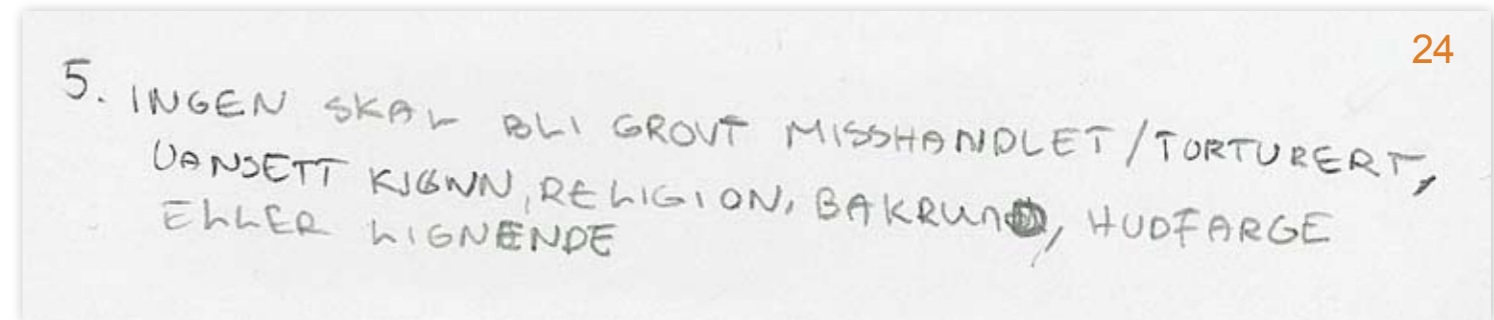 24
5. INGEN SKAL BLI GROVT MISSHANDLET/TORTURERT,
UANSETT KJØNN, RELIGION, BAKRUND, HUDFARGE
ELLER LIGNENDE